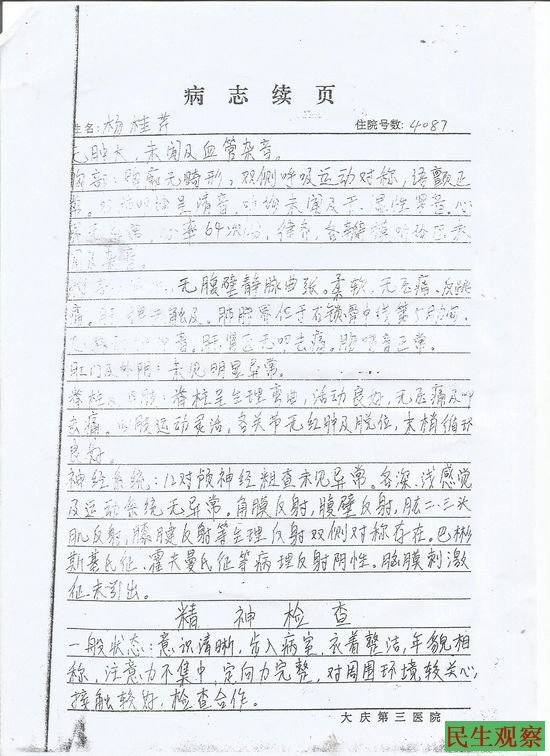 病志续页
姓名: 杨桂芹 住院号数: 4087
无肿大，未闻及血管杂音。
胸部：胸廓无畸形，双侧呼吸运动对称，语颤正
常。双肺叩诊呈清音，听诊未闻及干、湿性罗音。心
率64次/分，律齐，各瓣膜听诊区未
闻及杂音。
无腹壁静脉曲张。柔软，无压痛、反跳
痛。肝脾未触及。肺肝界位于右锁骨中线第5肋间，
肝肾区无叩击痛。肠鸣音正常。
肛门及外阴：未见明显异常。
脊柱及四肢：脊柱呈生理弯曲，活动良好，无压痛及叩
击痛。四肢运动灵活，各关节无红肿及脱位，末梢循环
良好。
神经系统：12对颅神经粗查未见异常。各深、浅感觉
及运动系统无异常。角膜反射，腹壁反射，肱二、三头
肌反射，膝腱反射等生理反射双侧对称存在。巴彬
斯基氏征、霍夫曼氏征等病理反射阴性。脑膜刺激
征未引出。
精神检查
一般状态：意识清晰，步入病室，衣着整洁，年貌相
称，注意力不集中，定向力完整，对周围环境较关心，
接触较好，检查合作。
大庆第三医院
民生观察